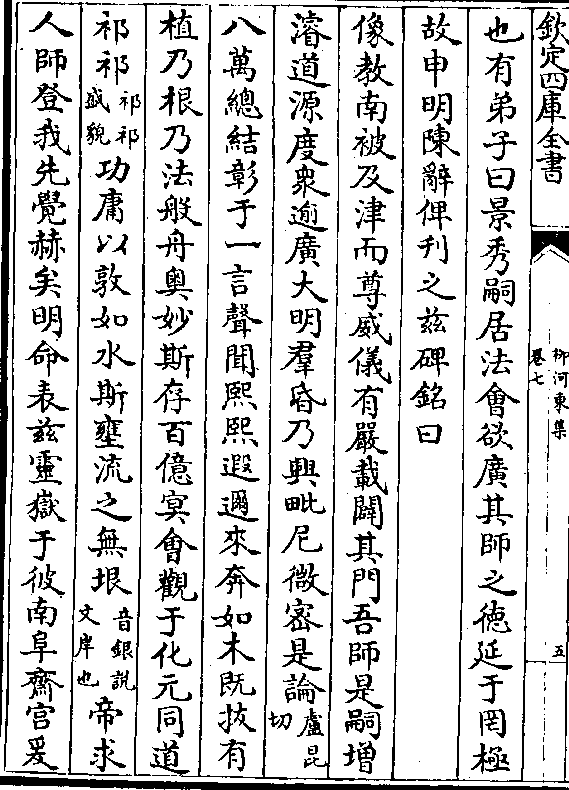 欽定四庫全書
柳河東集
卷七
五
也有弟子曰景秀嗣居法會欲廣其師之德延于罔極
故申明陳辭俾刋之兹碑銘曰
像教南被及津而尊威儀有嚴載闢其門吾師是嗣增
濬道源度衆逾廣大明羣昏乃興毗尼微密是論盧昆切
八萬總結彰于一言聲聞熙熙遐邇來奔如木既抜有
植乃根乃法般舟奥妙斯存百億冥會觀于化元同道
祁祁祁祁盛貌功庸以敦如水斯壅流之無垠音銀説文岸也帝求
人師登我先覺赫矣明命表兹靈嶽于彼南阜齋宫爰